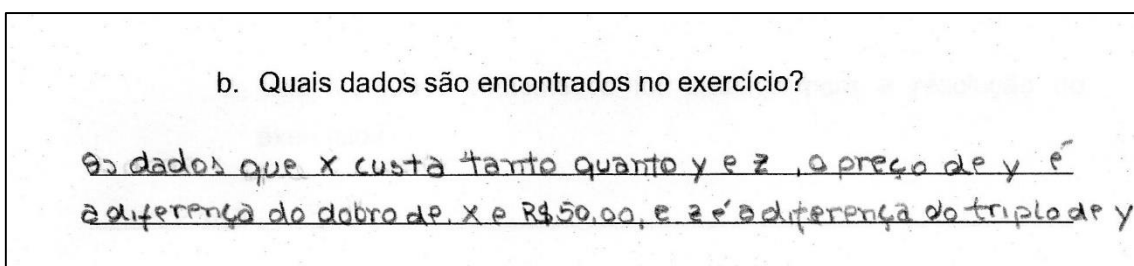 b. Quais dados são encontrados no exercício?
Os dados que x custa tanto quanto y e z, o preço de y é
a diferença do dobro de x e R$50,00, e z é a diferença do triplo de y